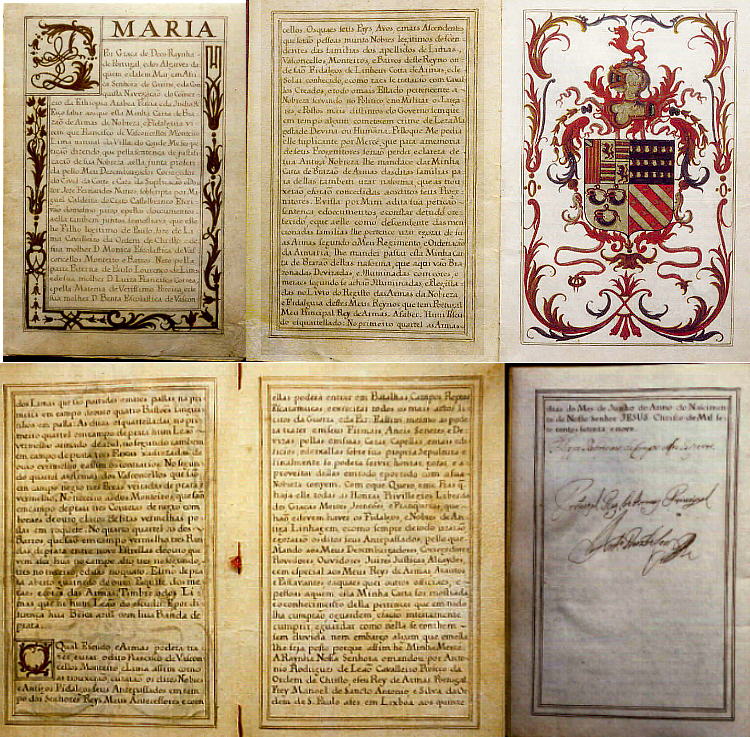 D. MARIA
Por Graça de Deos Raynha
de Portugal, e dos Algarves da
quem e dalem Mar, em Afri
ca Senhora de Guiné, e da Con
quista Navegação do Comer
cio da Ethiopia Arabia Persia e da India &
Faço saber aos que esta Minha Carta de Bra
zão de Armas de Nobreza, e Fidalguia vi
rem que Francisco de Vasconcellos Monteiro
Lima natural da Villa do Conde Me fez pe
tição dizendo que pella sentença de justifi
cação de sua Nobreza a ella junta proferi
da pello Meu Dezembargador Corregedor
do Civel da Corte e Caza da Suplicação o Dou
tor Joze Fernandes Nunes, sobscripta por Miguel
Caldeira de Castelbranco Escri
vão do mesmo juizo e pellos documentos a
ella tambem juntos se mostrava que elle
he Filho legitimo de Paulo Joze de Li
ma Cavalleiro da Ordem de Christo e de
sua molher D. Monica Escolastica de Vas
concellos Monteiro e Barros Neto pella
parte Paterna de Paulo Lourenço de Lima
e de sua molher D. Luiza Francisca Correa,
e pella Materna de Verissimo Pereira, e de
sua molher D. Benta Escolastica de Vascon
cellos. Os quaes seus Pays, Avos e mais Ascendentes
que forão pessoas muito Nobres legitimos descen
dentes das familias dos apellidos de Limas,
Vasconcellos, Monteiros, e Barros deste Reyno on
de são Fidalgos de Linhagem Cotta de Armas, e de
Solar conhecido, e como taes se tratarão com Caval
los Creados, e todo o mais Estado pertencente a
Nobreza servindo no Politico em Militar os Luga
res, e Postos mais distinctos do Governo sem que
em tempo algum cometessem crime de Leza Ma
gestade Devina ou Humana. Pello que Me pedia
elle suplicante por Merce que para a memoria
de seus Progenitores se não perder e clareza de
sua Antiga Nobreza lhe mandace dar Minha
Carta de Brazão de Armas das dittas familias pa
ra dellas tambem uzar na forma que as trou
xerão e forão concedidas aos dittos seus Proge
nitores. E vista por Mim a dita sua petição
sentença e documentos e constar de tudo o re
ferido e que a elle como descendente das men
cionadas familias lhe pertence uzar e gozar de su
as Armas segundo o Meu Regimento e Ordenação
da Armaria, lhe mandei passar esta Minha Car
ta de Brazão dellas na forma que aqui vão Bra
zonadas Devizadas, e Illuminadas com cores e
metaes segundo se achão Illuminadas, e Regista
das no Livro do Registo das Armas da Nobreza
e Fidalguia destes Meus Reynos que tem Portugal
Meu Principal Rey de Armas. A saber. Hum Escu
do esquartellado: No primeiro quartel as Armas
dos Limas que são partidas em tres pallas na pri
meira em campo de ouro quatro Bastões sangui
nhos em palla: As duas esquarteladas, no pri
meiro quartel em campo de prata hum Leão
vermelho armado de azul, no segundo tambem
em campo de prata tres Faxas
ouro e vermelho e assim os contrarios. No segun
do quartel as armas dos Vasconcellos que são
em campo negro tres Faxas veiradas de prata e
vermelho. No terceiro as dos Monteiros que são
em campo de prata tres Cornetas de negro com
boccaes de ouro e laços de fitas vermelhos pos
tas em roquete. No quarto quartel as dos
Barros que são em campo vermelho tres Ban
das de prata e entre nove Estrellas de ouro que
vem a ser hua no campo alto, tres no segundo,
tres no terceiro, e duas no quarto. Elmo de pra
ta aberto guarnecido de ouro. Paquife dos me
taes e cores das Armas. Timbre o dos Li
mas que he hum Leão do escudo. E por di
ferença hua Brica azul com hua Banda de
prata.
O Qual Escudo e Armas poderá tra
zer e uzar o dito Francisco de Vascon
cellos Monteiro e Lima assim como
as trouxerão, e uzarão os ditos Nobres
e Antigos Fidalgos seus Antepassados em tem
po dos Senhores Reys Meus Antecessores e com
ellas poderá entrar em Batalhas, Campos, Reptos
Escaramuças e exercitar todos os mais actos li
citos da Guerra, e da Paz. E assim mesmo as pode
rá trazer em seus Firmaes, Aneis, Sinetes e De
vizas, pellas em suas Cazas, Capellas, e mais edi
ficios, e deixallas sobre sua propria Sepultura e
finalmente se poderá servir, honrar, gozar, e a
proveitar dellas em tudo e por tudo como a sua
Nobreza convem. Com o que Quero, e me Praz q.
haja elle todas as Honras Privillegios Liberda
des Graças Merces Izenções, e Franquezas, que
hão e devem haver os Fidalgos, e Nobres de An
tiga Linhagem, e como sempre de todo uzarão
e gozarão os ditos seus Antepassados, pello que
Mando aos Meus Dezembargadores, Corregedores
Provedores Ouvidores Juizes Justiças Alcaydes,
e em especial aos Meus Reys de Armas Arautos
e Passavantes e a quaes quer outros officiaes, e
pessoas a quem esta Minha Carta for mostrada
e o conhecimento della pertencer que em tudo
lha cumprão e guardem e fação inteiramente
cumprir e guardar como nella se conthem
sem duvida nem embargo algum que em ella
lhe seja posto porque assim he Minha Merce.
A Raynha Nossa Senhora o mandou por Anto
nio Rodrigues de Leão Cavalleiro Professo da
Ordem de Christo, e seu Rey de Armas Portugal.
Frey Manoel de Santo Antonio e Silva da Or
dem de S. Paulo a fes em Lixboa aos quinze
dias do Mes de Junho do Anno do Nascimen
to de Nosso Senhor JESUS Christo de Mil se
te centos setenta e nove.
Portugal Rey de Armas Principal